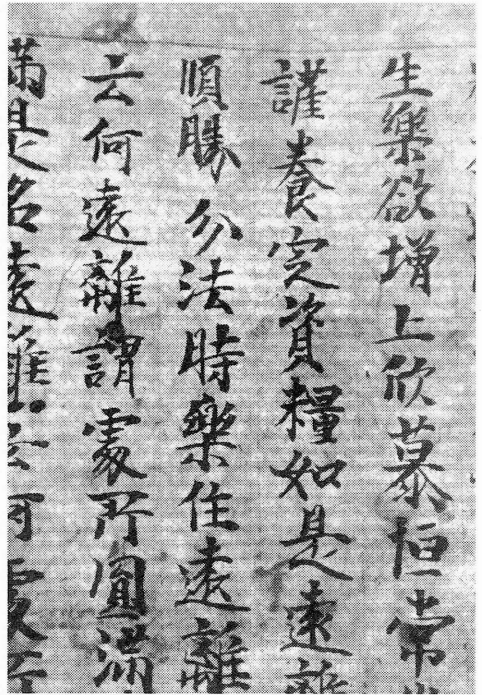 生樂欲增上欣慕恒常
謹養定資糧如是遠離
順勝分法時樂住遠離
云何遠離謂處所圓滿
滿是名遠離云何處所